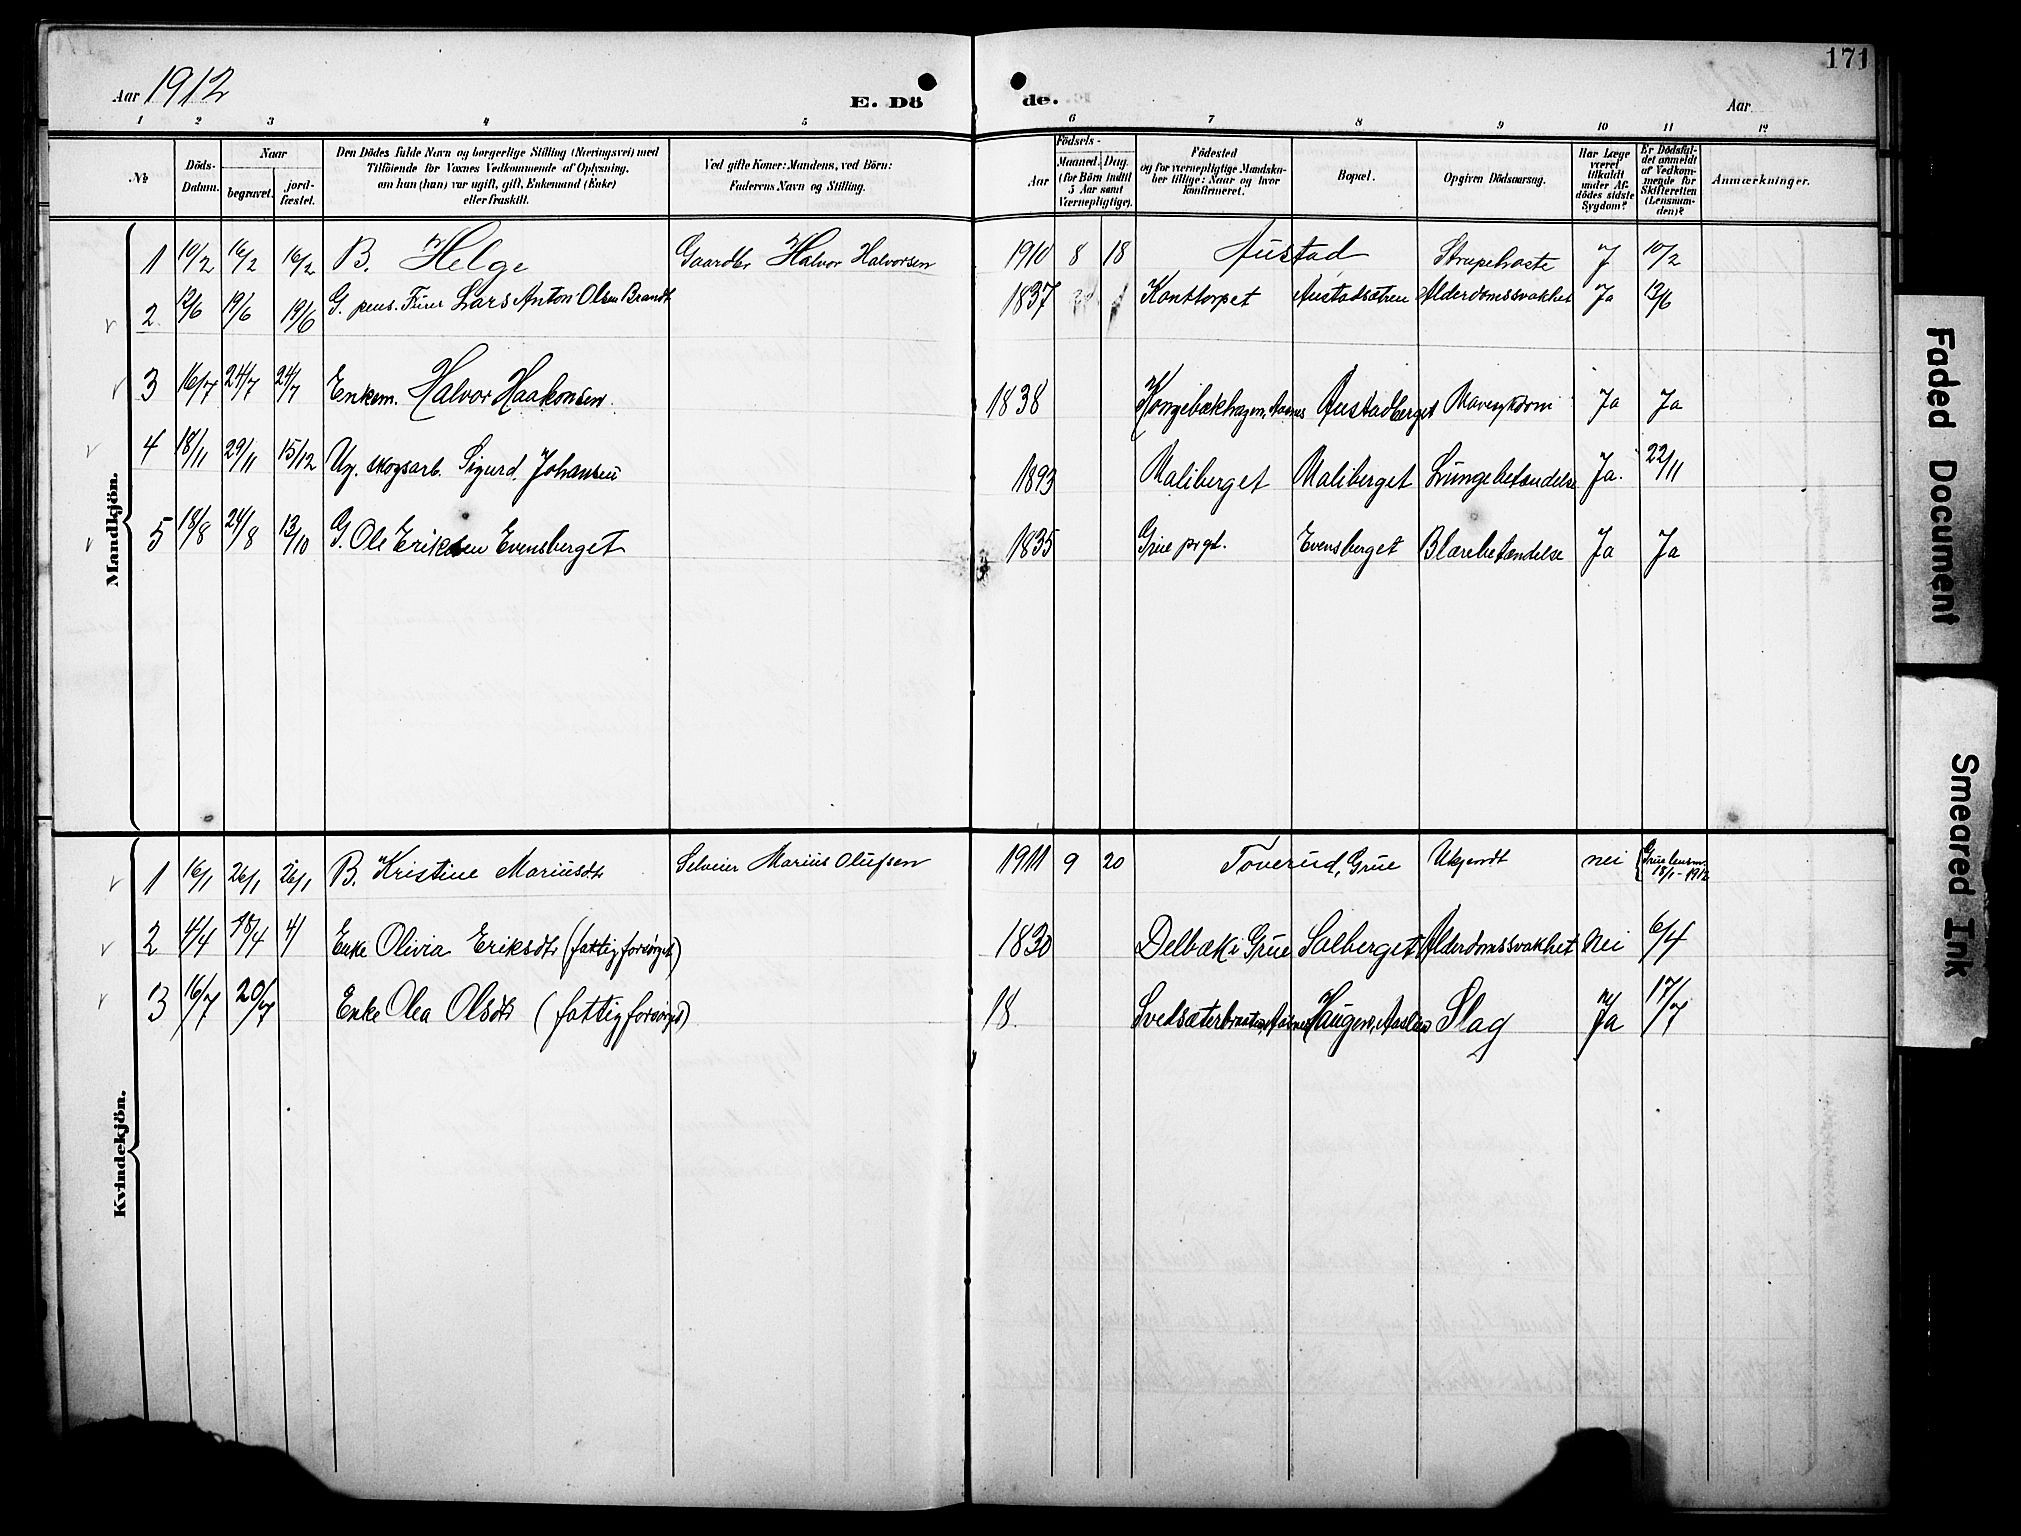 171
Aar 1912 E. Dö de. Aar
1 2 3 4 5 6 7 8 9 10 11 12
№ Döds-Datum. Naar begravet. jord-fæstet. Den Dödes fulde Navn og borgerlige Stilling (Næringsvei) med Tilföiende for Voxnes Vedkommende af Oplysning, om hun (han) var ugift, gift, Enkemand (Enke) eller fraskilt. Ved gifte Koner: Mandens, ved Börn: Faderens Navn og Stilling. Födsels- Aar Maaned. Dag. (for Börn indtil 5 Aar samt Værnepligtige). Födested og for værnepligtige Mandskaber tillige: Naar og hvor konfirmeret. Bopæl. Opgiven Dödsaarsag. Har Læge været tilkaldt under Afdödes sidste Sygdom? Er Dödsfaldet anmeldt af Vedkommende for Skifteretten (Lensmanden)? Anmærkninger.
Mandkjön.
1 10/2 16/2 16/2 B. Helge Gaardbr Halvor Halvorsen 1910 8 18 Austad Strupehoste J 10/2
2 12/6 19/6 19/6 G. pens. Furer Lars Anton Olsen Brandt 1837 Konttorpet Austadsætren Alderdomssvakhet Ja 13/6
3 16/7 24/7 24/7 Enkem. Halvor Haakonsen 1838 Kongebækhagen, Aasnes Austadberget Mavesykdom Ja Ja
4 18/11 29/11 15/12 Ug. skogsarb. Sigurd Johansen 1893 Maliberget Maliberget Lungebetændelse Ja. 22/11
5 18/8 24/8 13/10 G. Ole Eriksen Evensberget 1835 Grue prgd. Evensberget Blærebetændelse Ja Ja
Kvindekjön.
1 16/1 26/1 26/1 B. Kristine Mariusdtr Selveier Marius Olufsen 1911 9 20 Toverud, Grue Ukjendt nei Grue lensm. 18/1-1912
2 4/4 18/4 4/ Enke Olivia Eriksdtr (fattigforsørget) 1830 Delbæk i Grue Salberget Alderdomssvakhet Nei 6/4
3 16/7 20/7 Enke Olea Olsdtr (fattigforsørget) 18 Svedsæterbraaten, Aasnes Haugen, Aasnes Slag Ja 17/7
Faded Document
Smeared Ink